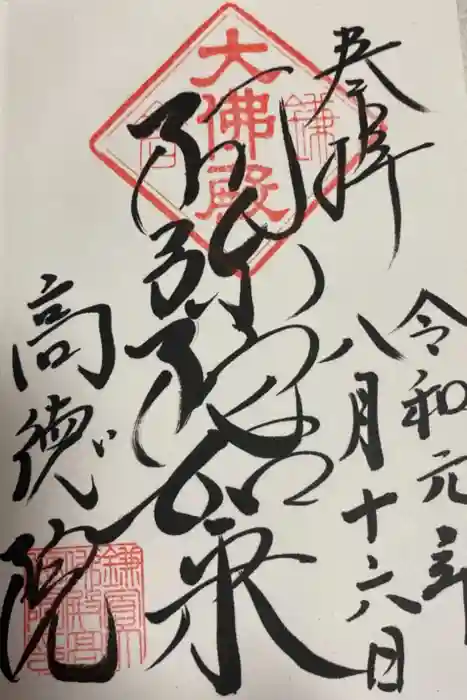 奉拝
令和元年
八月十六日
鎌倉
大佛殿
阿弥陀如来
高徳院